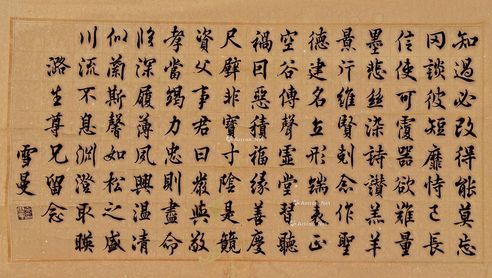 知過必改得能莫忘
罔談彼短靡恃己長
信使可覆器欲難量
墨悲絲染詩讚羔羊
景行維賢剋念作聖
德建名立形端表正
空谷傳聲虛堂習聽
禍因惡積福緣善慶
尺璧非寶寸陰是競
資父事君曰嚴與敬
孝當竭力忠則盡命
臨深履薄夙興溫清
似蘭斯馨如松之盛
川流不息淵澄取暎
潞生尊兄留念
雪曼